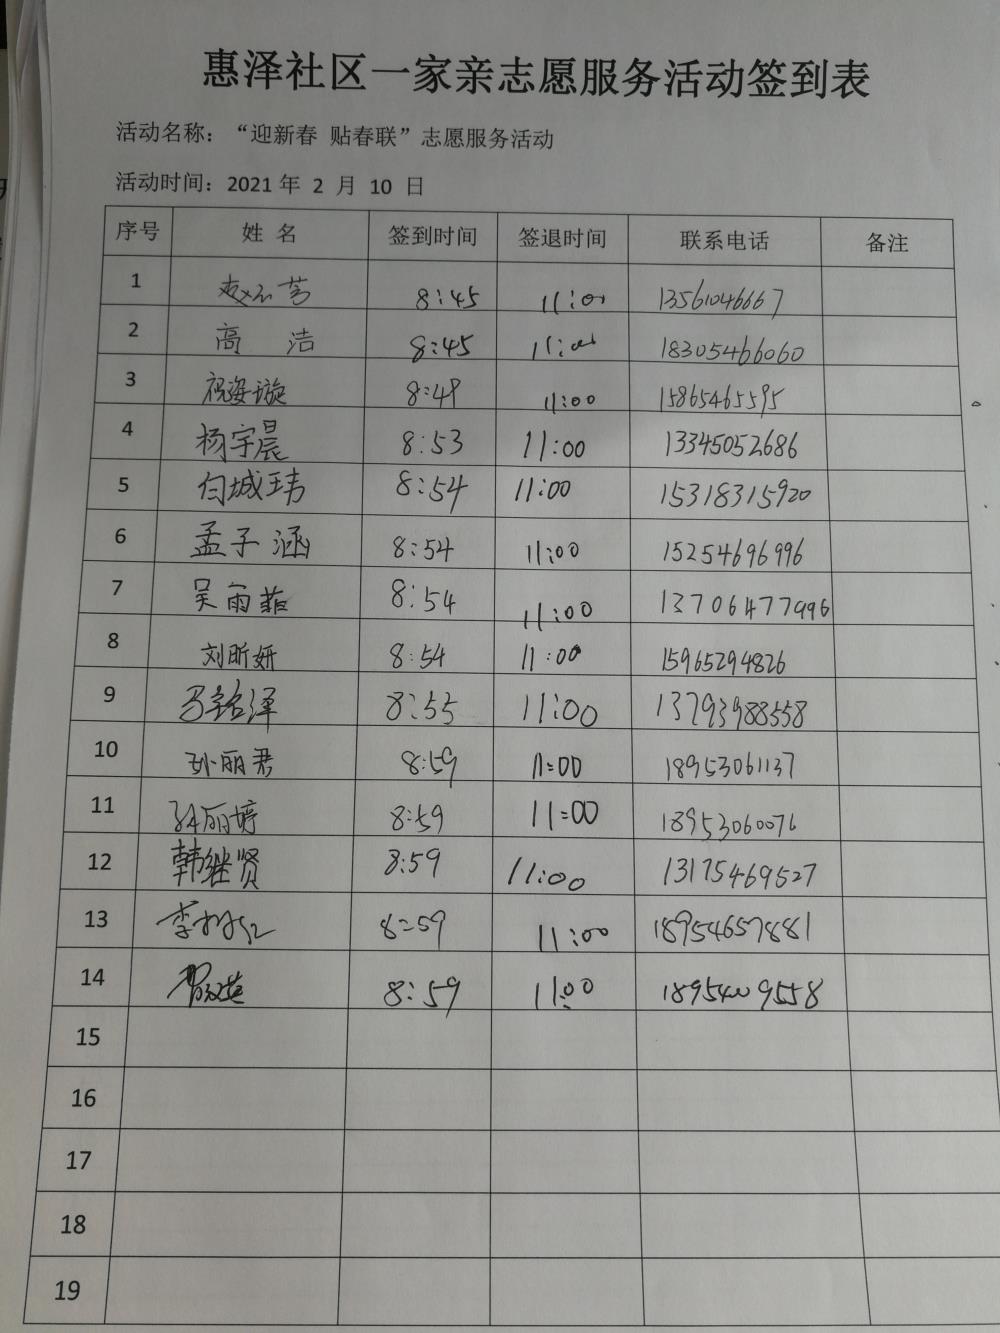 惠泽社区一家亲志愿服务活动签到表
活动名称：“迎新春 贴春联”志愿服务活动
活动时间：2021 年 2 月 10 日
序号 姓 名 签到时间 签退时间 联系电话 备注
1 8:45 11:00 13561046667
2 高 洁 8:45 11:00 18305466060
3 祝姿璇 8:49 11:00 15865465595
4 杨宇晨 8:53 11:00 13345052686
5 城玮 8:54 11:00 15318315920
6 孟子涵 8:54 11:00 15254696996
7 吴雨菲 8:54 11:00 13706477996
8 刘昕妍 8:54 11:00 15965294826
9 马铭泽 8:55 11:00 13793988558
10 孙丽君 8:59 11:00 18953061137
11 丽婷 8:59 11:00 18953060076
12 韩继贤 8:59 11:00 13175469527
13 李 8:59 11:00 18954657881
14 8:59 11:00 18954009558
15
16
17
18
19